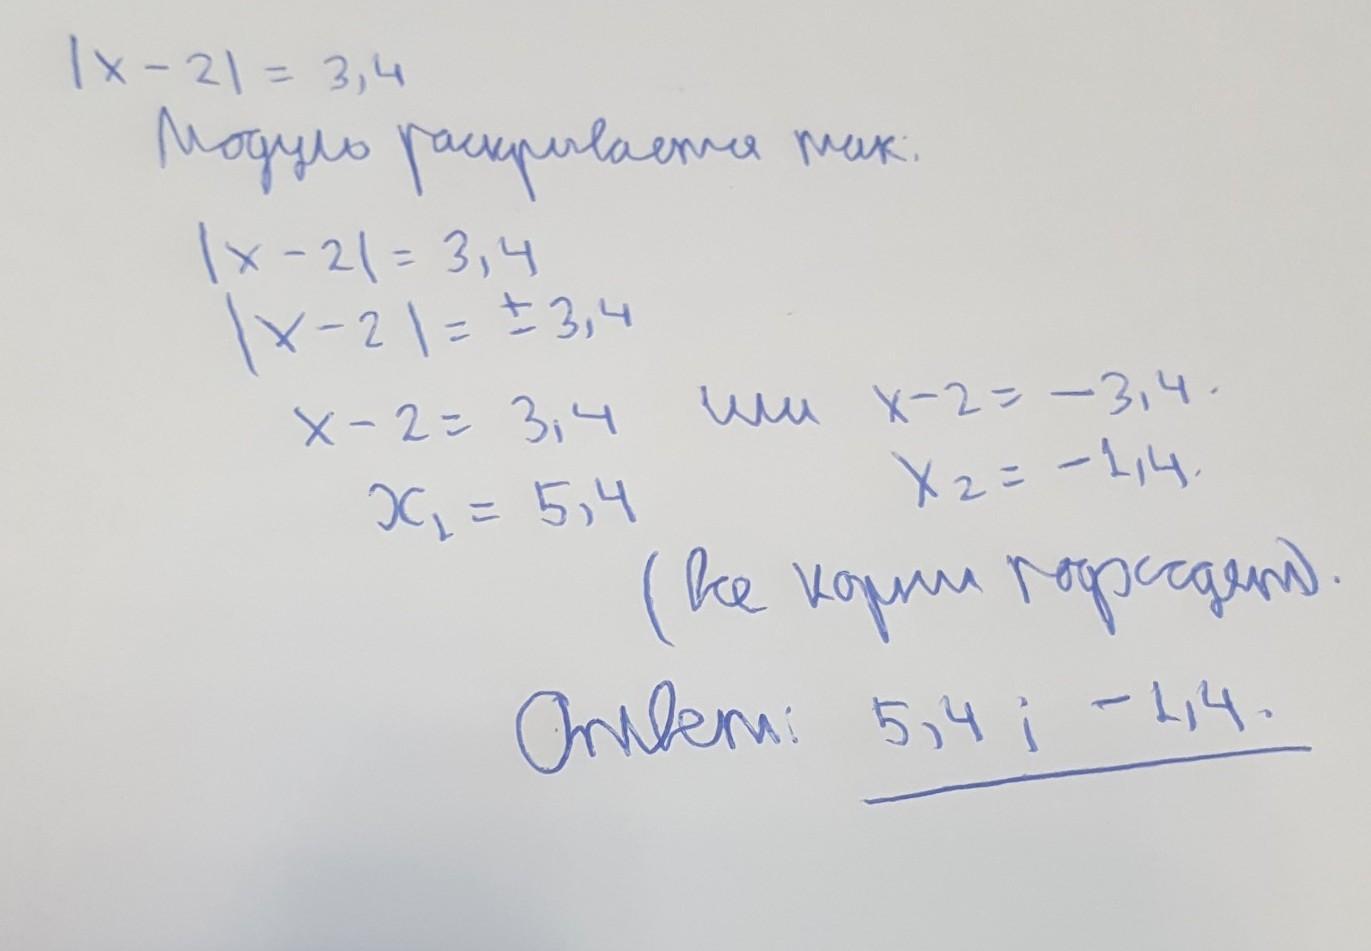 |x - 2| = 3,4
Модуль раскрывается так:
|x - 2| = 3,4
|x - 2| = ± 3,4
x - 2 = 3,4 или x - 2 = - 3,4.
x₁ = 5,4 x₂ = -1,4.
(Все корни подходят).
Ответ: 5,4 ; -1,4.